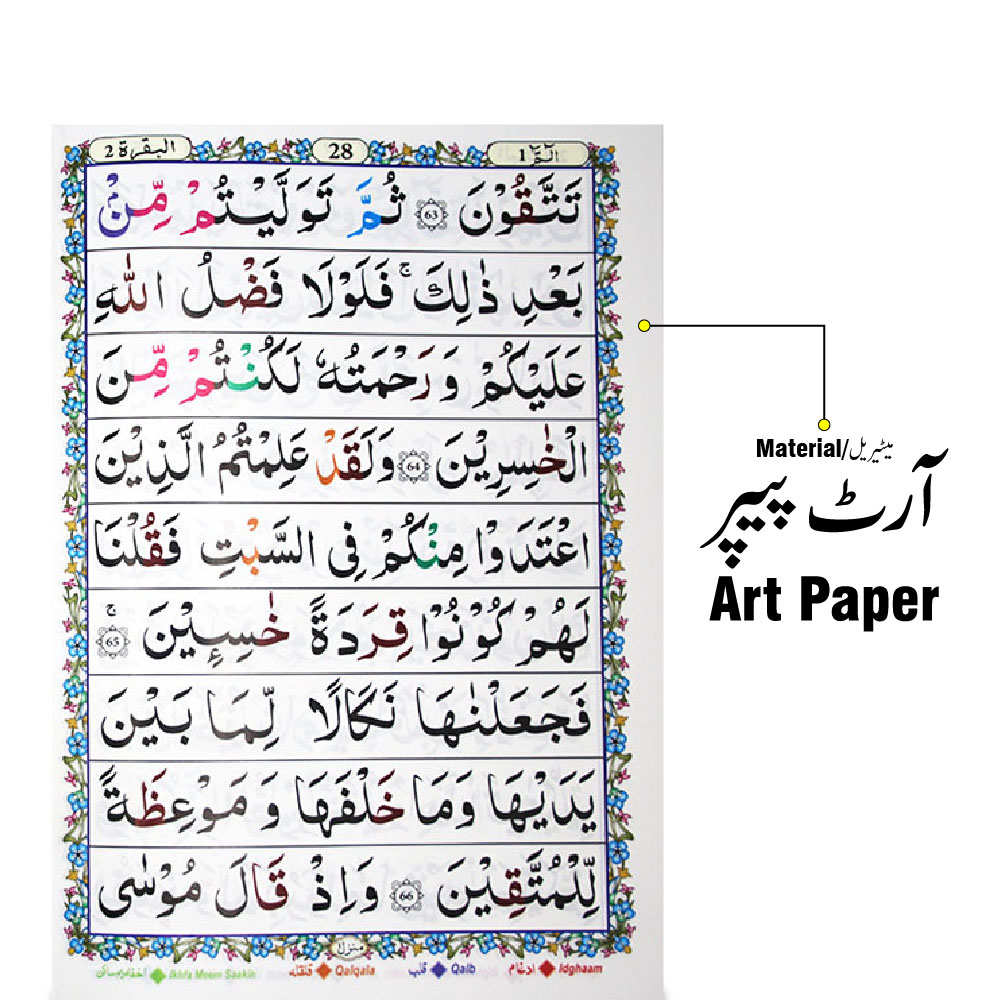 الٓمّٓ 1 28 البقرة 2
تَتَّقُوْنَ 63 ثُمَّ تَوَلَّيْتُمْ مِّنْۢ
بَعْدِ ذٰلِكَ ۚ فَلَوْلَا فَضْلُ اللّٰهِ
عَلَيْكُمْ وَرَحْمَتُهٗ لَكُنْتُمْ مِّنَ
الْخٰسِرِيْنَ 64 وَلَقَدْ عَلِمْتُمُ الَّذِيْنَ
اعْتَدَوْا مِنْكُمْ فِى السَّبْتِ فَقُلْنَا
لَهُمْ كُوْنُوْا قِرَدَةً خٰسِـِٕيْنَ ۚ 65
فَجَعَلْنٰهَا نَكَالًا لِّمَا بَيْنَ
يَدَيْهَا وَمَا خَلْفَهَا وَ مَوْعِظَةً
لِّلْمُتَّقِيْنَ 66 وَاِذْ قَالَ مُوْسٰى
منزل
Idghaam ادغام Qalb قلب Qalqala قلقلہ Ikhfa Meem Saakin
Material/میٹیریل
آرٹ پیپر
Art Paper